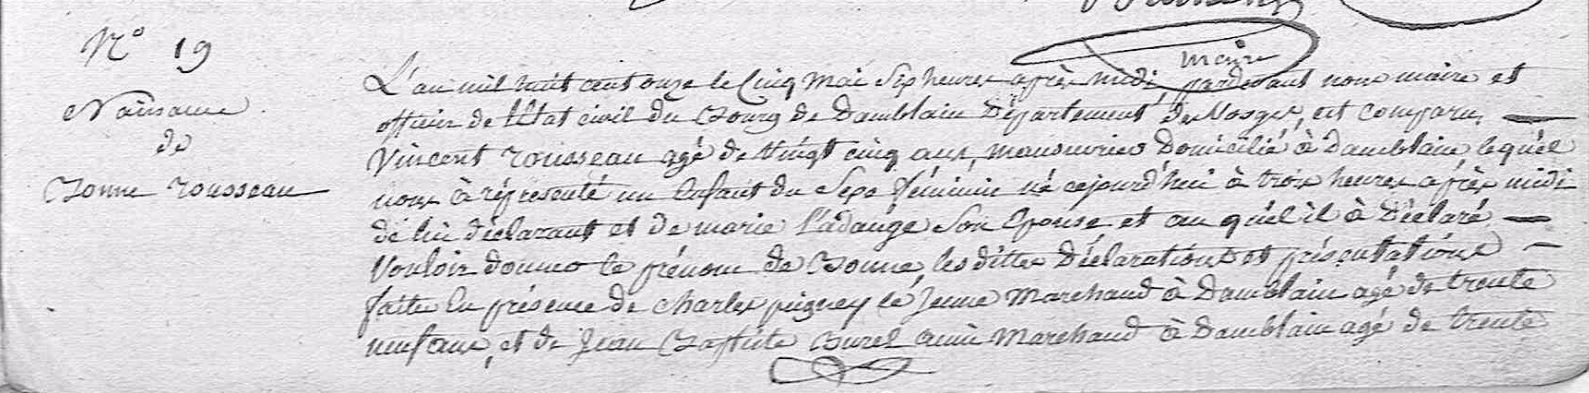 maire
N° 19
Naissance
de
Bonne rousseau
L'an mil huit cent onze le Cinq Mai Six heures après midi pardevant nous maire et
officier de l'Etat civil du Bourg de Damblain Département Des Vosges, est comparu
Vincent rousseau agé de Vingt cinq ans, manouvrier Domicilié à Damblain lequel
nous à réprésenté un Enfant du Sexe féminin né cejourd'hui à trois heures après midi
de lui déclarant et de marie l'adauge Son Epouse et au quél il à Déclaré
Vouloir donner le prénom de Bonne, les dittes Déclarations et présentations
faite En présence de charles pugney lé Jeune Marchand à Damblain agé de trente
neuf ans, et de Jean Baptiste Burel ainé Marchand à Damblain agé de trente